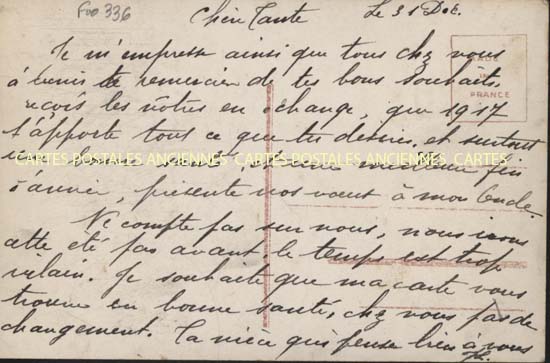 Foo 336
Chère Tante Le 31 Dbe.
Je m'empresse ainsi que tous chez vous
à venir te remercier de tes bons souhaits,
reçois les nôtres en échange, que 1917
t'apporte tous ce que tu desires, et surtout
une bonne santé, et une meilleur fin
d'année, présente nos vœux à mon Oncle.
Ne compte pas sur nous, nous irons
cette été pas avant. le temps est trop
vilain. Je souhaite que ma carte vous
trouve en bonne santé, chez nous pas de
changement. Ta nièce qui pense bien à vous
MADE
IN
FRANCE
CARTES POSTALES ANCIENNES CARTES POSTALES ANCIENNES CARTES